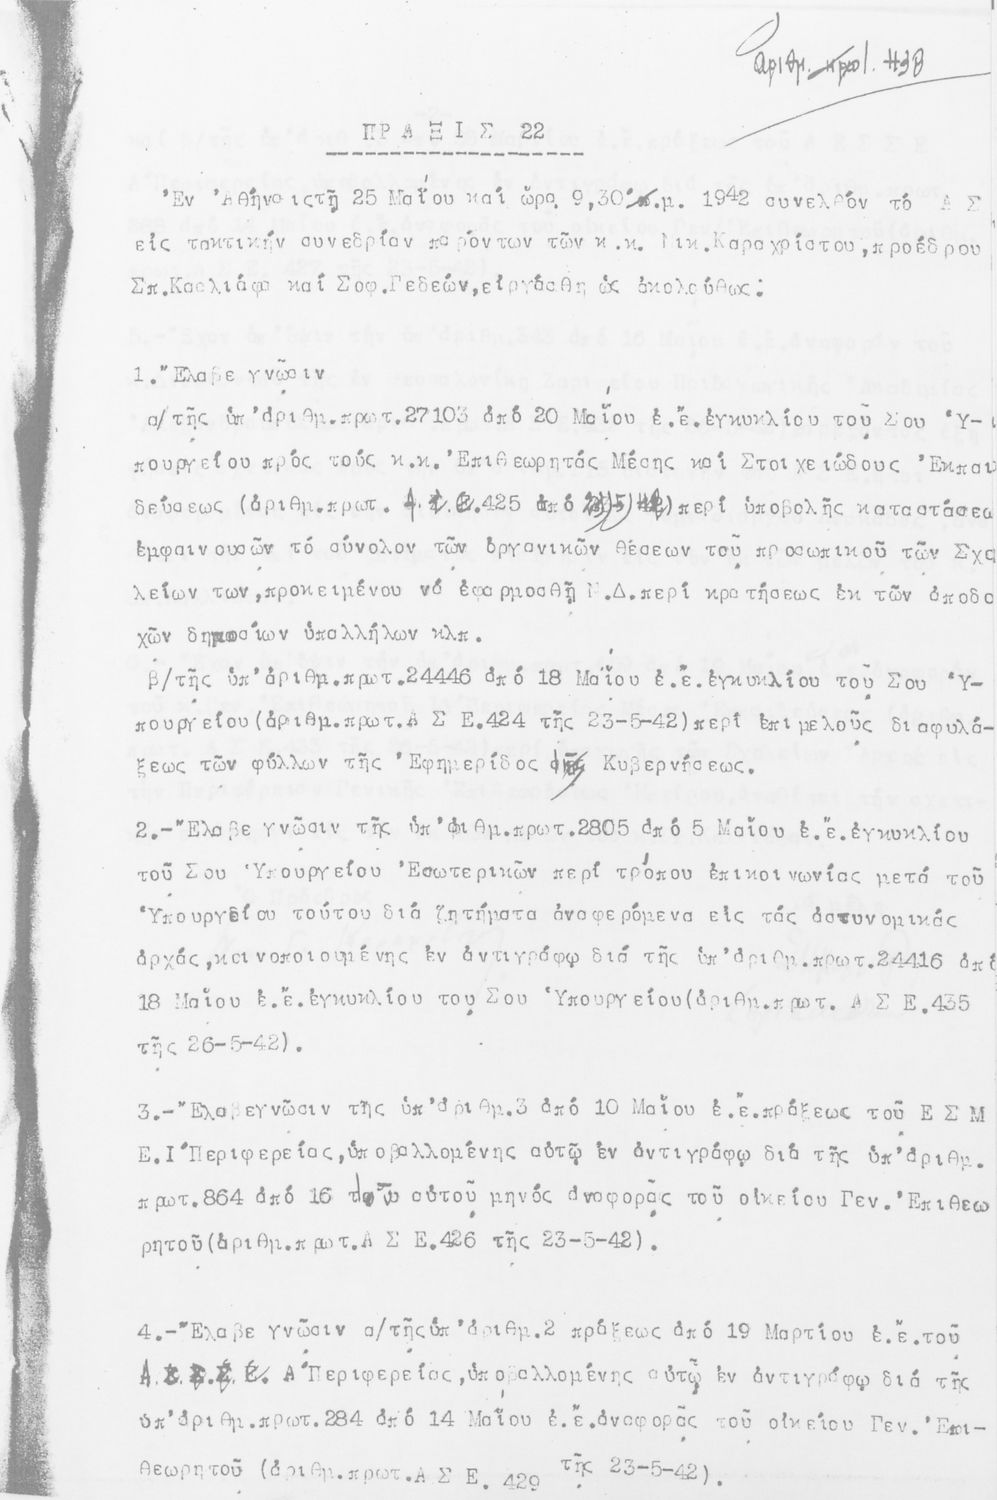 Ἀριθμ. πρωτ. 438
ΠΡΑΞΙΣ 22
Ἐν Ἀθήναις τῇ 25 Μαΐου καί ὥρα 9,30 π.μ. 1942 συνελθόν τό Α Σ
εἰς τακτικήν συνεδρίαν παρόντων τῶν κ.κ. Νικ.Καραχρίστου,προέδρου
Σπ.Καλλιάφα καί Σοφ.Γεδεών,εἰργάσθη ὡς ἀκολούθως:
1.Ἔλαβε γνῶσιν
α/τῆς ὑπ'ἀριθμ.πρωτ.27103 ἀπό 20 Μαΐου ἐ.ἔ.ἐγκυκλίου τοῦ Σου Ὑ-
πουργείου πρός τούς κ.κ.Ἐπιθεωρητάς Μέσης καί Στοιχειώδους Ἐκπαι
δεύσεως (ἀριθμ.πρωτ. Α.Σ.Ε.425 ἀπό 23)5)42)περί ὑποβολῆς καταστάσεω
ἐμφαινουσῶν τό σύνολον τῶν ὀργανικῶν θέσεων τοῦ προσωπικοῦ τῶν Σχο
λείων των,προκειμένου νά ἐφαρμοσθῇ Ν.Δ.περί κρατήσεως ἐκ τῶν ἀποδο
χῶν δημοσίων ὑπαλλήλων κλπ.
β/τῆς ὑπ'ἀριθμ.πρωτ.24446 ἀπό 18 Μαΐου ἐ.ἔ.ἐγκυκλίου τοῦ Σου Ὑ-
πουργείου(ἀριθμ.πρωτ.Α Σ Ε.424 τῆς 23-5-42)περί ἐπιμελοῦς διαφυλά-
ξεως τῶν φύλλων τῆς Ἐφημερίδος τῆς Κυβερνήσεως.
2.-Ἔλαβε γνῶσιν τῆς ὑπ'ἀριθμ.πρωτ.2805 ἀπό 5 Μαΐου ἐ.ἔ.ἐγκυκλίου
τοῦ Σου Ὑπουργείου Ἐσωτερικῶν περί τρόπου ἐπικοινωνίας μετά τοῦ
Ὑπουργείου τούτου διά ζητήματα ἀναφερόμενα εἰς τάς ἀστυνομικάς
ἀρχάς,κοινοποιουμένης ἐν ἀντιγράφῳ διά τῆς ὑπ'ἀριθμ.πρωτ.24416 ἀπό
18 Μαΐου ἐ.ἔ.ἐγκυκλίου του Σου Ὑπουργείου(ἀριθμ.πρωτ. Α Σ Ε.435
τῆς 26-5-42).
3.-Ἔλαβεγνῶσιν τῆς ὑπ'ἀριθμ.3 ἀπό 10 Μαΐου ἐ.ἔ.πράξεως τοῦ Ε Σ Μ
Ε.Ι'Περιφερείας,ὑποβαλλομένης αὐτῷ ἐν ἀντιγράφῳ διά τῆς ὑπ'ἀριθμ.
πρωτ.864 ἀπό 16 τοῦ αὐτοῦ μηνός ἀναφορᾶς τοῦ οἰκείου Γεν.Ἐπιθεω
ρητοῦ(ἀριθμ.πρωτ.Α Σ Ε.426 τῆς 23-5-42).
4.-Ἔλαβε γνῶσιν α/τῆςὑπ'ἀριθμ.2 πράξεως ἀπό 19 Μαρτίου ἐ.ἔ.τοῦ
Α'Περιφερείας,ὑποβαλλομένης αὐτῷ ἐν ἀντιγράφῳ διά τῆς
ὑπ'ἀριθμ.πρωτ.284 ἀπό 14 Μαΐου ἐ.ἔ.ἀναφορᾶς τοῦ οἰκείου Γεν.Ἐπι-
θεωρητοῦ (ἀριθμ.πρωτ.Α Σ Ε. 429 τῆς 23-5-42).